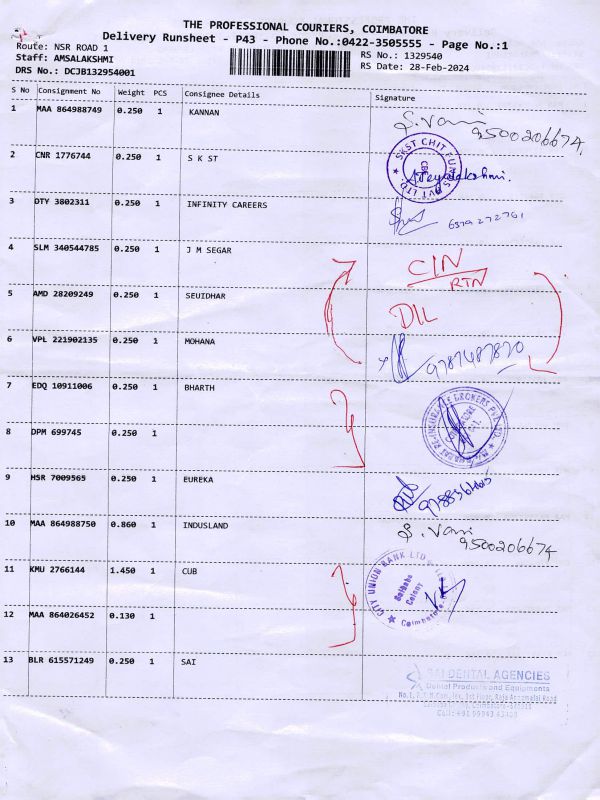 THE PROFESSIONAL COURIERS, COIMBATORE
Delivery Runsheet - P43 - Phone No.:0422-3505555 - Page No.:1
Route: NSR ROAD 1
Staff: AMSALAKSHMI
DRS No.: DCJB132954001
RS No.: 1329540
RS Date: 28-Feb-2024
S No Consignment No Weight PCS Consignee Details Signature
1 MAA 864988749 0.250 1 KANNAN S. Vani
9500206674
2 CNR 1776744 0.250 1 S K ST
SKST CHIT FUNDS PVT LTD.
CBE
3 DTY 3802311 0.250 1 INFINITY CAREERS
6379272761
4 SLM 340544785 0.250 1 J M SEGAR CIN
RTN
5 AMD 28209249 0.250 1 SEUIDHAR DIL
6 VPL 221902135 0.250 1 MOHANA 9787487870
7 EDQ 10911006 0.250 1 BHARTH
8 DPM 699745 0.250 1
9 HSR 7009565 0.250 1 EUREKA
10 MAA 864988750 0.860 1 INDUSLAND S. Vani
9500206674
11 KMU 2766144 1.450 1 CUB
CITY UNION BANK LTD
Saibaba
Colony
Coimbatore
12 MAA 864026452 0.130 1
13 BLR 615571249 0.250 1 SAI
SAI DENTAL AGENCIES
Dental Products and Equipments